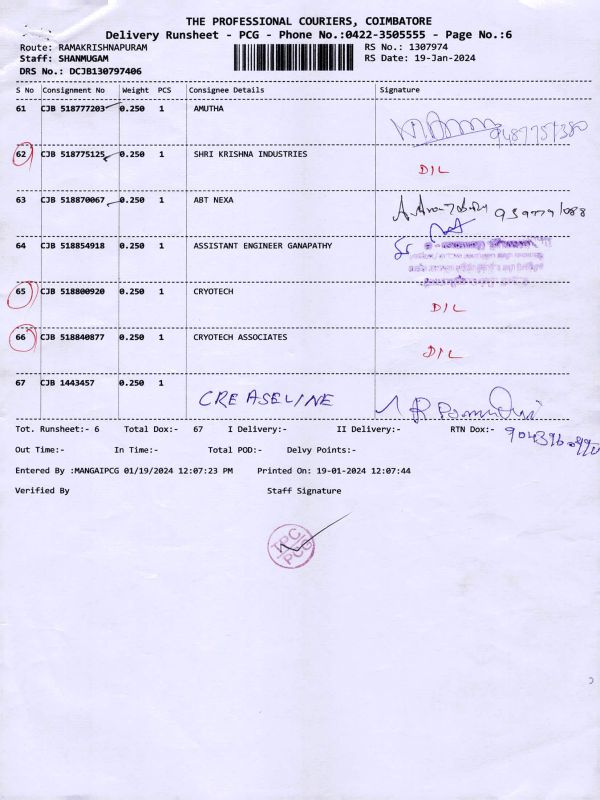 THE PROFESSIONAL COURIERS, COIMBATORE
Delivery Runsheet - PCG - Phone No.:0422-3505555 - Page No.:6
Route: RAMAKRISHNAPURAM RS No.: 1307974
Staff: SHANMUGAM RS Date: 19-Jan-2024
DRS No.: DCJB130797406
S No Consignment No Weight PCS Consignee Details Signature
61 CJB 518777203 0.250 1 AMUTHA
62 CJB 518775125 0.250 1 SHRI KRISHNA INDUSTRIES D/L
63 CJB 518870067 0.250 1 ABT NEXA
64 CJB 518854918 0.250 1 ASSISTANT ENGINEER GANAPATHY
65 CJB 518800920 0.250 1 CRYOTECH D/L
66 CJB 518840877 0.250 1 CRYOTECH ASSOCIATES D/L
67 CJB 1443457 0.250 1 CREASELINE
Tot. Runsheet:- 6 Total Dox:- 67 I Delivery:- II Delivery:- RTN Dox:-
Out Time:- In Time:- Total POD:- Delvy Points:-
Entered By :MANGAIPCG 01/19/2024 12:07:23 PM Printed On: 19-01-2024 12:07:44
Verified By Staff Signature
TPC
PCG